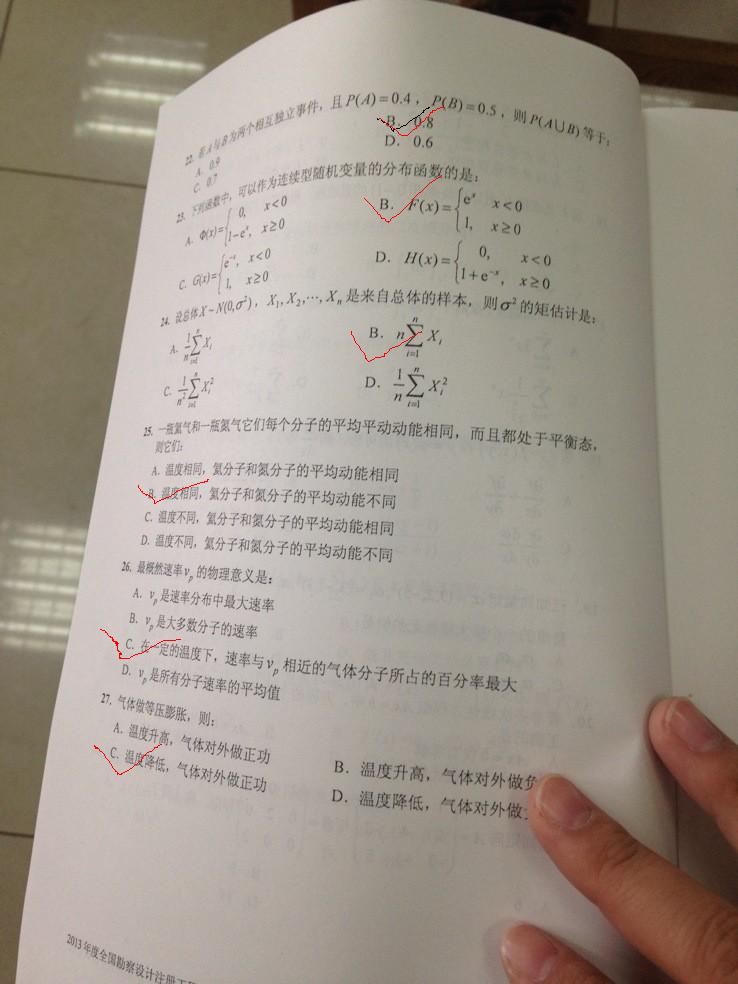 22. 在A与B为两个相互独立事件，且P(A)=0.4，P(B)=0.5，则P(A∪B)等于：
A. 0.9 B. 0.8
C. 0.7 D. 0.6
23. 下列函数中，可以作为连续型随机变量的分布函数的是：
A. Φ(x)={0, x<0; 1-eˣ, x≥0 B. F(x)={eˣ x<0; 1, x≥0
C. G(x)={e⁻ˣ, x<0; 1, x≥0 D. H(x)={0, x<0; 1+e⁻ˣ, x≥0
24. 设总体X~N(0,σ²)，X₁,X₂,…,Xₙ是来自总体的样本，则σ²的矩估计是：
A. 1/n ∑ᵢ₌₁ⁿ Xᵢ B. n∑ᵢ₌₁ⁿ Xᵢ
C. 1/n² ∑ᵢ₌₁ⁿ Xᵢ² D. 1/n ∑ᵢ₌₁ⁿ Xᵢ²
25. 一瓶氦气和一瓶氮气它们每个分子的平均平动动能相同，而且都处于平衡态，
则它们：
A. 温度相同，氦分子和氮分子的平均动能相同
B. 温度相同，氦分子和氮分子的平均动能不同
C. 温度不同，氦分子和氮分子的平均动能相同
D. 温度不同，氦分子和氮分子的平均动能不同
26. 最概然速率vₚ的物理意义是：
A. vₚ是速率分布中最大速率
B. vₚ是大多数分子的速率
C. 在一定的温度下，速率与vₚ相近的气体分子所占的百分率最大
D. vₚ是所有分子速率的平均值
27. 气体做等压膨胀，则：
A. 温度升高，气体对外做正功 B. 温度升高，气体对外做负
C. 温度降低，气体对外做正功 D. 温度降低，气体对外做
2013年度全国勘察设计注册工